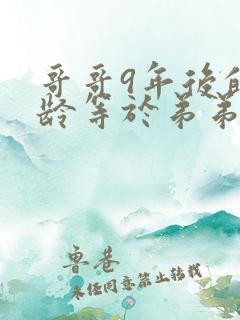 哥哥9年後的
龄等於弟弟
鲁巷
未经同意禁止转载